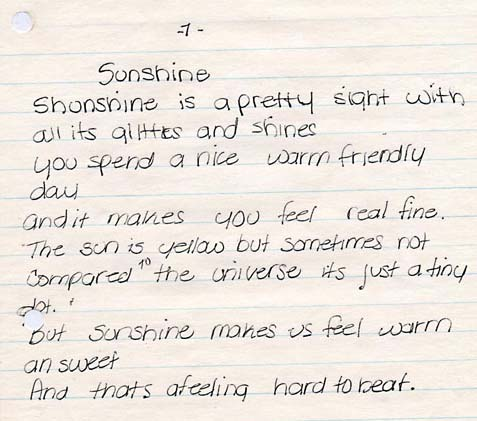 -7-
Sunshine
Shonshine is a pretty sight with
all its glitters and shines
you spend a nice warm friendly
day
and it makes you feel real fine.
The sun is yellow but sometimes not
Compared to the universe its just a tiny
dot.
But sunshine makes us feel warm
an sweet
And thats a feeling hard to beat.